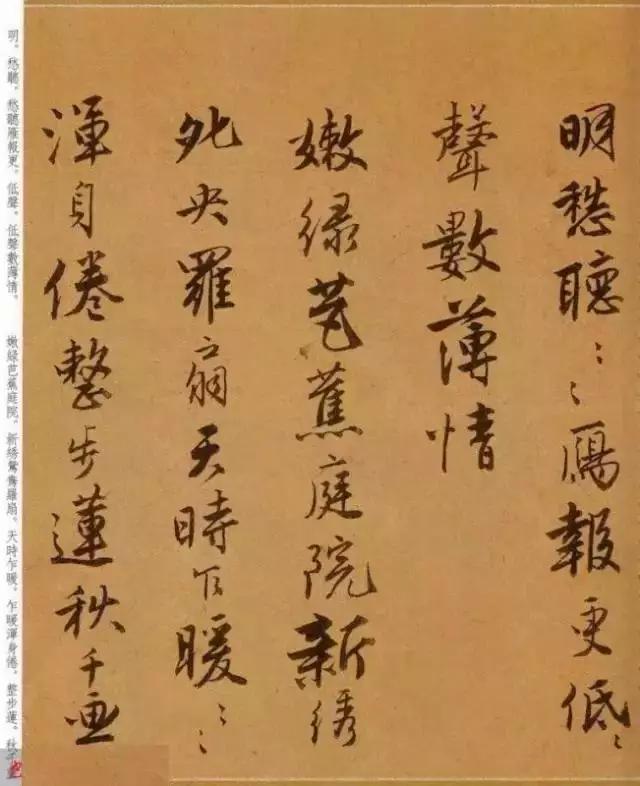 明愁聽〻〻鴈報更低〻
聲數薄情
嫩緑芭蕉庭院新綉
夗央羅扇天時乍暖〻〻
渾身倦整步蓮秋千画
明。愁聽。愁聽雁報更。低聲。低聲數薄情。 嫩緑芭蕉庭院。新綉鴛鴦羅扇。天時乍暖。乍暖渾身倦。整步蓮。秋千